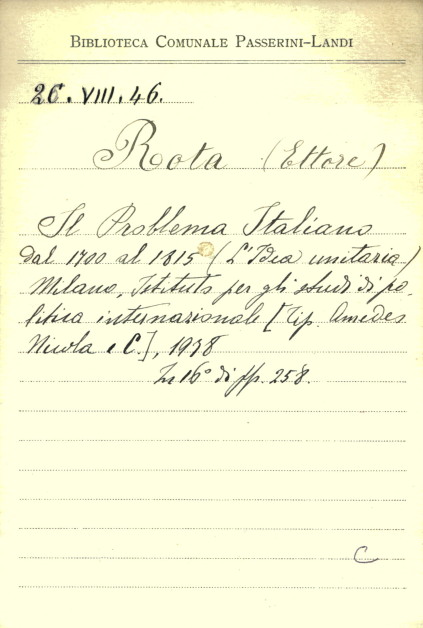 BIBLIOTECA COMUNALE PASSERINI-LANDI
2C. VIII. 46.
Rota (Ettore)
Il Problema Italiano
dal 1700 al 1815 (L'Idea unitaria)
Milano, Istituto per gli studi di po-
litica internazionale [Tip. Amedeo
Nicola e C.], 1938
In 16° di pp. 258.
C